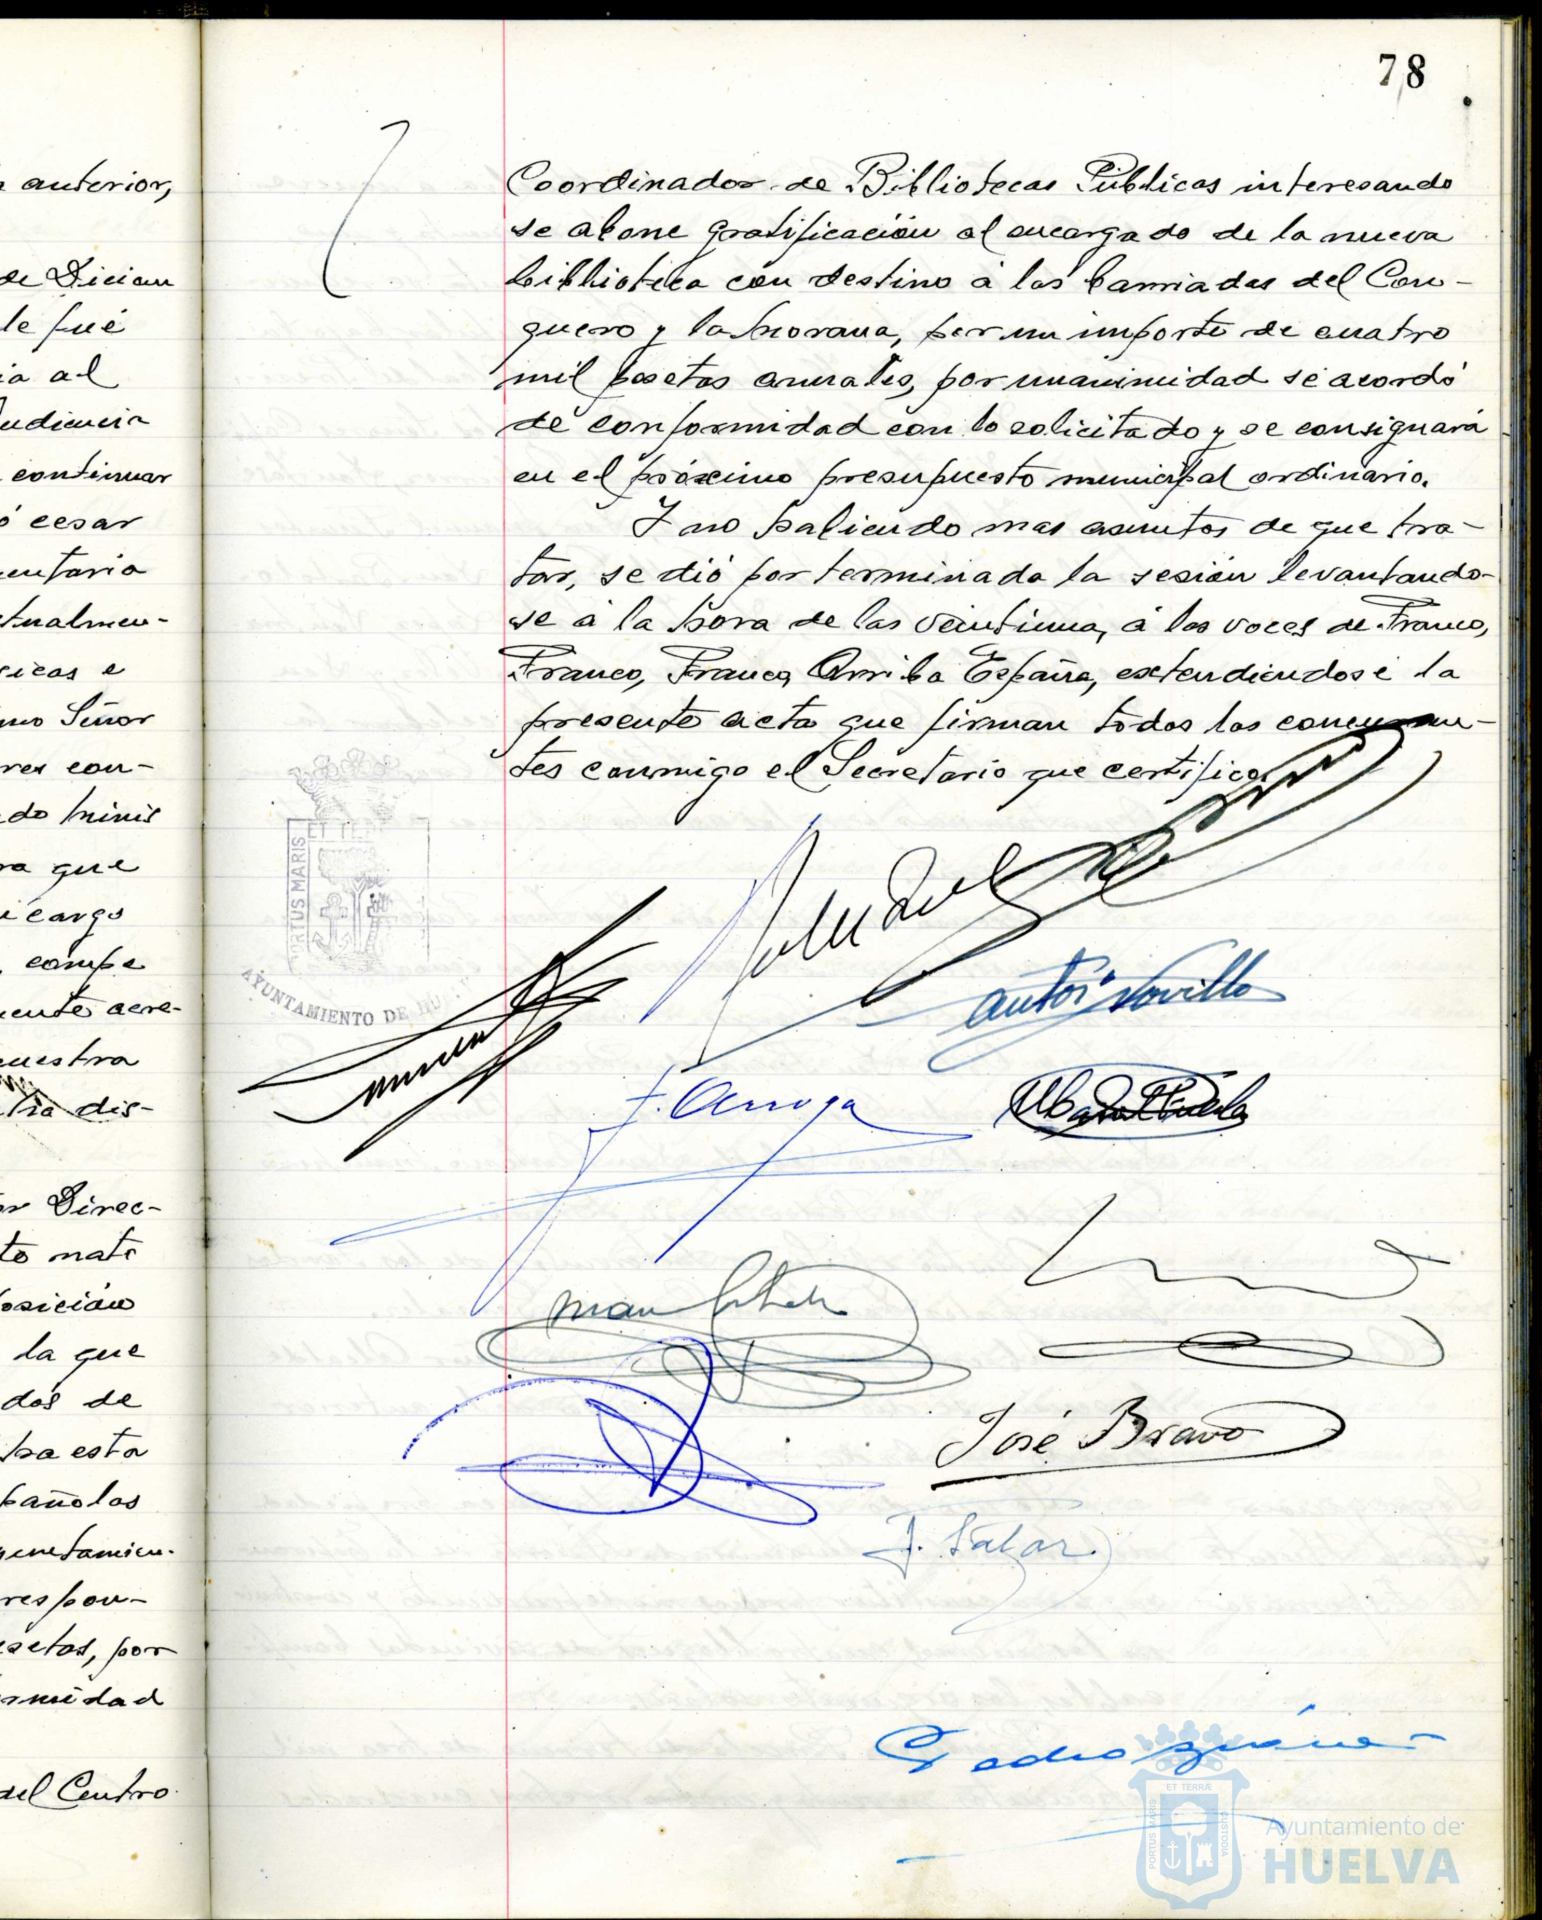 78
anterior,
de Diciem
le fué
ia al
udiencia
continuar
ó cesar
entaria
tualmen-
sicas e
mo Señor
res con-
do Minis
ra que
cargo
compe
mente acre-
uestra
dis-
or Direc-
to mate
posición
la que
dos de
ha esta
pañolas
respon-
esetas, por
ormidad
del Centro
Coordinador de Bibliotecas Públicas interesando
se abone gratificación al encargado de la nueva
biblioteca con destino á las barriadas del Con-
quero y la Morana, por un importe de cuatro
mil pesetas anuales, por unanimidad se acordó
de conformidad con lo solicitado y se consignará
en el próximo presupuesto municipal ordinario.
Y no habiendo mas asuntos de que tra-
tar, se dió por terminada la sesión levantando-
se á la hora de las veintiuna, á las voces de Franco,
Franco, Franco, Arriba España, extendiendose la
presente acta que firman todos los concurren-
tes conmigo el Secretario que certifico
ET TERR
PORTUS MARIS
AYUNTAMIENTO DE HU
Antº Novillo
F. Arroya
José Bravo
J. Salar
Pedro
ET TERRÆ
PORTUS MARIS
CUSTODIA
Ayuntamiento de
HUELVA